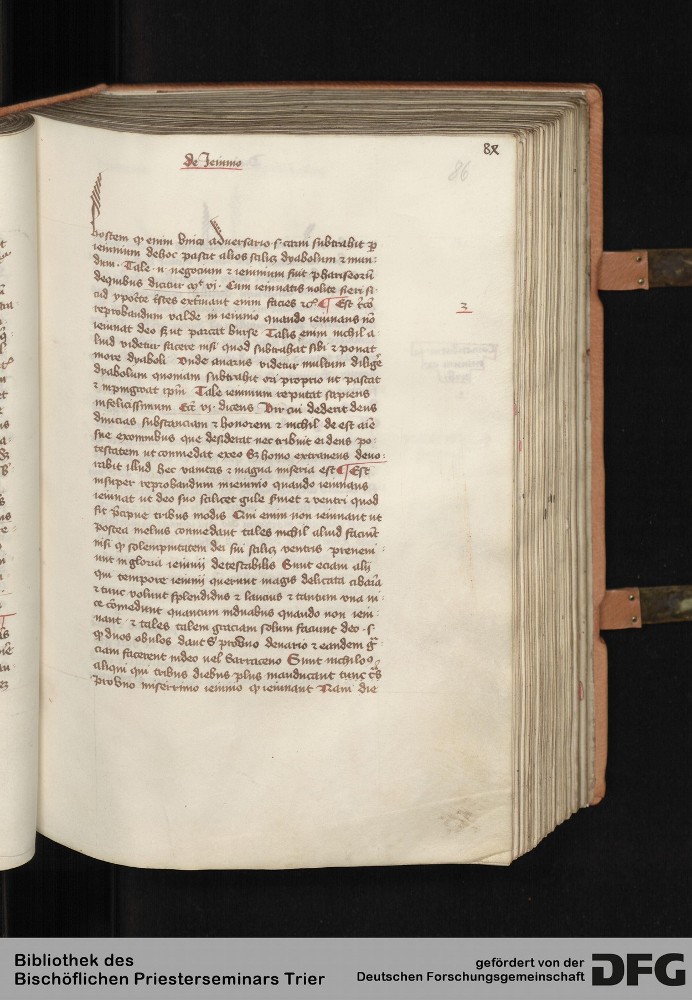 de Ieiunio
86
hostem qͥ enim vnico aduersario s. carni subtrahit ꝑ
ieiunium de hoc pascit alios scilicꝫ dyabolum ⁊ mun
dum. Tale .n. negocium ⁊ ieiunium fuit phariseorum
de quibus dicitur vi. Cum ieiunatis nolite fieri si
cut ypocͥte tristes exterminant enim facies ⁊cͣ. Est
reprobandum valde in ieiunio quando ieiunans nō
ieiunat deo s ut parcat burse Talis enim nichil a
liud videtur facere nisi quod subtrahat sibi ⁊ ponat
more dyaboli Vnde auarus videtur multum diligͤe
dyabolum quoniam subtrahit ori proprio ut pascat
⁊ inpingwat ipm̄. Tale ieiunium reputat sapiens
infelicissimum Ecͨ vi. dicens Vir cui dederit deus
diuicias substanciam ⁊ honorem ⁊ nichil de est aīe
sue ex omnibus que desiderat nec tribuit ei deus po
testatem ut comedat ex eo Sꝫ homo extraneus deuo
rabit illud hec vanitas ⁊ magna miseria est Est
insuper reprobandum in ieiunio quando ieiunans
ieiunat ut deo suo scilicet gule s uiet ⁊ ventri quod
fit p̄cipue tribus modis Qui enim non ieiunant ut
postea melius comedant tales nichil aliud faciūt
nisi qͥ solempnitatem dei sui scilicꝫ ventris preueni
unt in gloria ieiunij detestabilis Sunt eciam alij
qui tempore ieiunij querunt magis delicata cibaria
⁊ tunc volunt splendidius ⁊ laucius ⁊ tantum vna vi
ce cōmedunt quantum in duabus quando non ieiu
nant ⁊ tales talem graciam solum faciunt deo . s
qͥ duos obulos dant ꝓ vno denario ⁊ eandem gͣ
ciam facerent iudeo vel sarraceno Sunt nichilo⁹
aliqui qui tribus diebus plus manducant tunc
pro vno miserrimo ieiunio qͦ ieiunant Nam die
2
Bibliothek des
Bischöflichen Priesterseminars Trier
gefördert von der
Deutschen Forschungsgemeinschaft
DFG